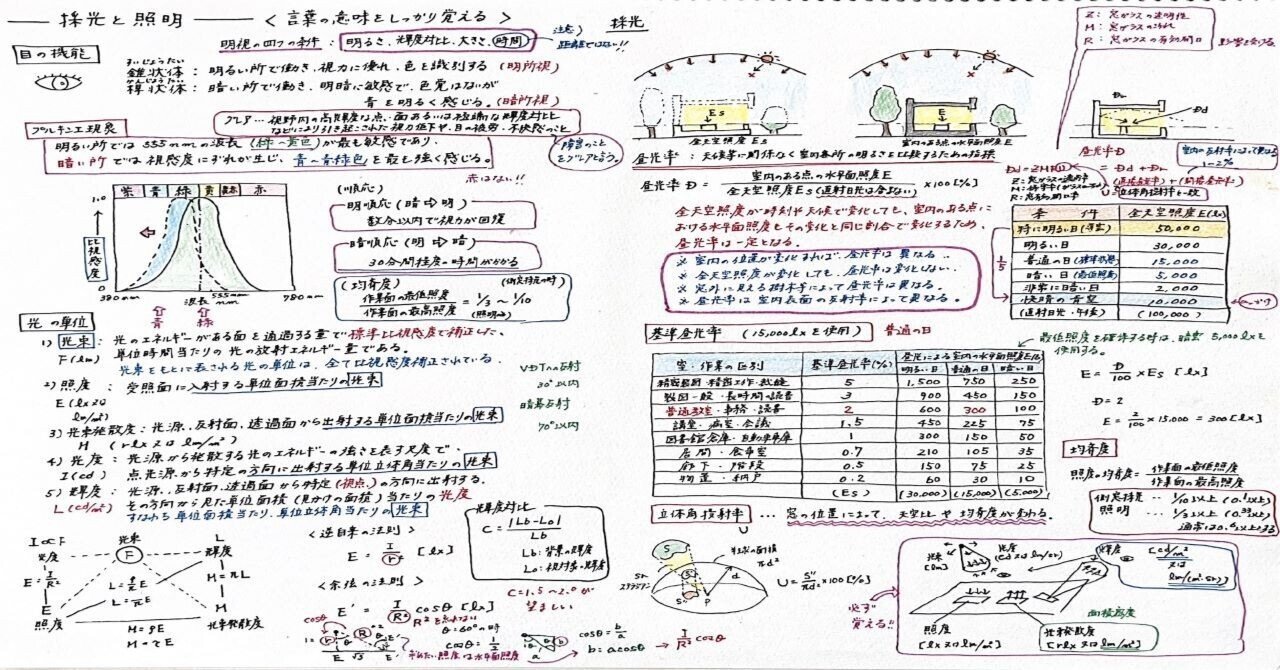 採光と照明 〈言葉の意味をしっかり覚える〉
目の機能
明視の四つの条件:明るさ、輝度対比、大きさ、時間
注意)
距離ではない!!
すいじょうたい
錐状体:明るい所で働き、視力に優れ、色を識別する(明所視)
かんじょうたい
桿状体:暗い所で働き、明暗に敏感で、色覚はないが
青を明るく感じる。(暗所視)
グレア…視野内の高輝度な点、面あるいは極端な輝度対比
などにより引き起こされた視力低下や、目の疲労・不快感のこと
障害のこと
をグレアという。
プルキンエ現象
明るい所では555nmの波長(緑〜黄色)が最も敏感であり、
暗い所では視感度にずれが生じ、青〜青緑色を最も強く感じる。
赤はない!!
紫 青 緑 黄 橙 赤
1.0
比視感度
0
380nm 波長nm 555nm 780nm
青 緑
(順応)
明順応(暗⇨明)
数分以内で視力が回復
暗順応(明⇨暗)
30分間程度の時間がかかる
(均斉度)
作業面の最低照度
作業面の最高照度 = 1/3〜1/10
(側窓採光の時)
(照明は)
光の単位
1) 光束:光のエネルギーがある面を通過する量で標準比視感度で補正した、
F(lm) 単位時間当たりの光の放射エネルギー量である。
光束をもとに表される光の単位は、全て比視感度補正されている。
2) 照度:受照面に入射する単位面積当たりの光束
E(lx又は
lm/m²)
VDTへの反射
30°以内
暗幕反射
70°以内
3) 光束発散度:光源、反射面、透過面から出射する単位面積当たりの光束
M(rlx又はlm/m²)
4) 光度:光源から発散する光のエネルギーの強さを表す尺度で、
I(cd) 点光源から特定の方向に出射する単位立体角当たりの光束
5) 輝度:光源、反射面、透過面から特定(視点)の方向に出射する、
L(cd/m²) その方向から見た単位面積(見かけの面積)当たりの光度
すなわち単位面積当たり、単位立体角当たりの光束
I∝F 光束 L
光度 F 輝度
E=I/R² M=πL
E M
照度 光束発散度
M=ρE
M=τE
〈逆自乗の法則〉
E = I/r² [lx]
〈余弦の法則〉
E' = I/R² cosθ [lx]
R²を忘れない
θ=60°の時
cosθ=1/2
求めたい照度は水平面照度
cosθ=b/a
b=acosθ → I/R² cosθ
輝度対比
C = |Lb-Lo| / Lb
Lb:背景の輝度
Lo:視対象の輝度
C=1.5〜2.0が
望ましい
採光
Z:窓ガラスの透明性
M:窓ガラスの汚れ
R:窓ガラスの有効開口
影響を受ける。
Es
全天空照度Es
E
室内のある点の水平面照度E
Dr
Dd
昼光率D
室内の反射率によって異なる
1〜2%
昼光率:天候等に関係なく室内各所の明るさを比較するための指標
昼光率D = 室内のある点の水平面照度E / 全天空照度Es(直射日光は含まない) ×100[%]
Dd=ZMRU = Dd+Dr
(直接昼光率)+(間接昼光率)
立体角投射率と一致
全天空照度が時刻や天候で変化しても、室内のある点に
おける水平面照度もその変化と同じ割合で変化するため、
昼光率は一定となる。
※ 室内の位置が変化すれば、昼光率は異なる。
※ 全天空照度が変化しても、昼光率は変化しない。
※ 窓外に見える樹木等によって昼光率は異なる。
※ 昼光率は室内表面の反射率によって異なる。
1/5
条件 全天空照度E(lx)
特に明るい日(薄曇) 50,000
明るい日 30,000
普通の日(標準状態) 15,000
暗い日(最低照度) 5,000
非常に暗い日 2,000
快晴の青空 10,000
(直射日光・午後) (100,000)
基準昼光率(15,000lxを使用) 普通の日
最低照度を確保する時は、暗い5,000lxを
使用する。
室・作業の区別 基準昼光率(%) 昼光による室内の水平面照度E(lx)
明るい日 普通の日 暗い日
精密製図・精密工作・裁縫 5 1,500 750 250
製図一般・長時間の読書 3 900 450 150
普通教室・事務・読書 2 600 300 100
講堂・病室・会議 1.5 450 225 75
図書館倉庫・自動車車庫 1 300 150 50
居間・食事室 0.7 210 105 35
廊下・階段 0.5 150 75 25
物置・納戸 0.2 60 30 10
(Es) (30,000) (15,000) (5,000)
E = D/100 ×Es [lx]
D=2
E = 2/100 ×15,000 = 300[lx]
均斉度
照度の均斉度 = 作業面の最低照度 / 作業面の最高照度
側窓採光…1/10以上(0.1以上)
照明…1/3以上(0.33以上)
立体角投射率…窓の位置によって、天空比や均斉度が変わる。
U
S
S'
S"
P
半球の面積
πd²
d
sr
ステラジアン
U = S"/πd² ×100[%]
必ず
覚える!!
光束
[lm]
光度
(cd又はlm/sr)
輝度
[cd/m²
又は
lm/(m²·sr)]
照度
[lx又はlm/m²]
面積密度
光束発散度
[rlx又はlm/m²]